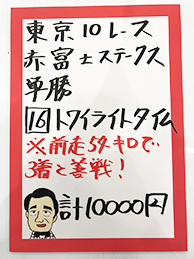 東京10レース
赤富士ステークス
単勝
16トワイライトタイム
※前走54キロで
3着と善戦!
計10000円